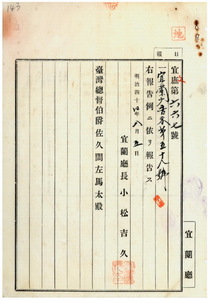 149
地
宜庶第六六七號
一宜蘭
右報告例ニ依リ報告ス
明治四十 年八月五日
宜蘭廳長小松吉久
臺灣總督伯爵佐久間左馬太殿
宜蘭廳